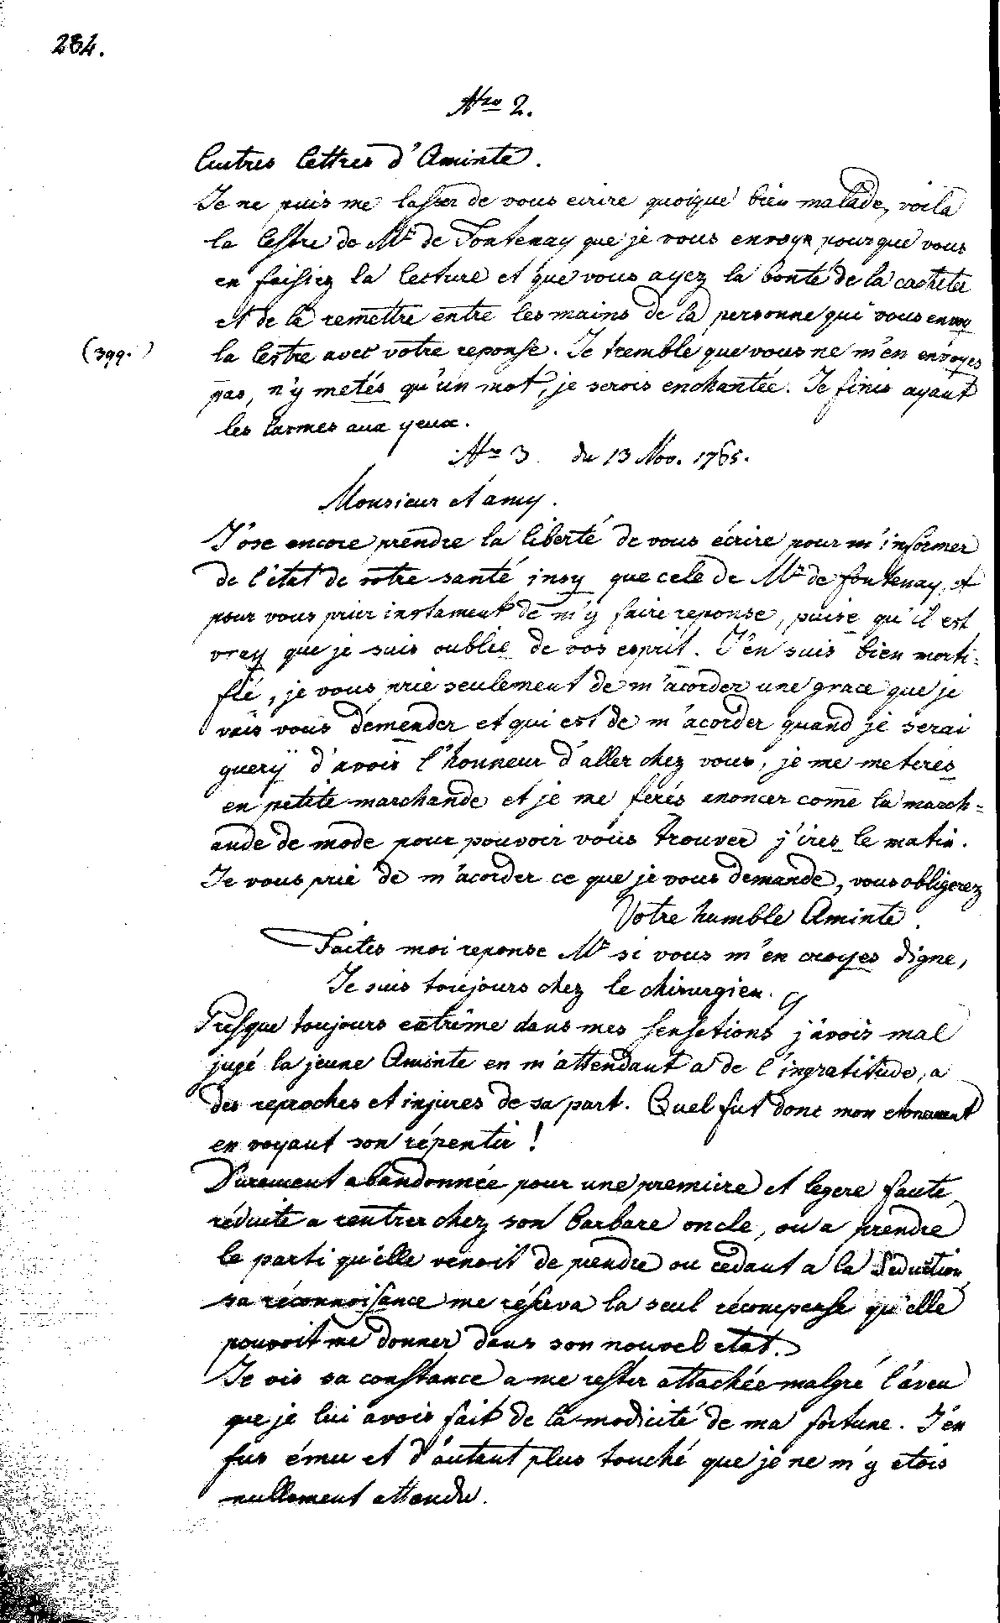 284.
Nro 2.
Autres lettres d'Aminte.
Je ne puis me lasser de vous ecrire quoique bien malade, voila
la lestre de Mr de Fontenay que je vous envoye pour que vous
en faissiez la lecture et que vous ayez la bonté de la cacheter
et de la remettre entre les mains de la personne qui vous envoy
(399.) la lestre avec votre reponse. Je tremble que vous ne m'en envoyes
pas, n'y metés qu'un mot, je serois enchantée. Je finis ayant
les larmes aux yeux.
Nro 3. du 13 Nov. 1765.
Monsieur et amy.
J'ose encore prendre la liberté de vous écrire pour m'informer
de l'état de votre santé insy que cele de Mr de fontenay, et
pour vous prier instament de m'y faire reponse, puise qu'il est
vray que je suis oublié de vos esprit. J'en suis bien morti-
fié, je vous prie seulement de m'acorder une grace que je
vais vous démender et qui est de m'acorder quand je serai
guery d'avoir l'honneur d'aller chez vous, je me meterés
en petite marchande et je me ferés anoncer come la march-
ande de mode pour pouvoir vous trouver j'ires le matin.
Je vous prie de m'acorder ce que je vous demande, vous obligerez
Votre humble Aminte.
Faites moi reponse Mr si vous m'en croyes digne,
Je suis toujours chez le chirurgien.
Presque toujours extrême dans mes sensations j'avois mal
jugé la jeune Aminte en m'attendant a de l'ingratitude, a
des reproches et injures de sa part. Quel fut donc mon etonnement
en voyant son répentir!
Durement abandonnée pour une premiere et legere faute,
réduite a rentrer chez son barbare oncle, ou a prendre
le parti qu'elle venoit de prendre ou cédant a la Séduction,
sa réconnoissance me réserva la seul récompense qu'elle
pouvoit me donner dans son nouvel etat.
Je vis sa constance a me rester attachée malgré l'aveu
que je lui avois fait de la modicité de ma fortune. J'en
fus ému et d'autent plus touché que je ne m'y etois
nullement attendu.